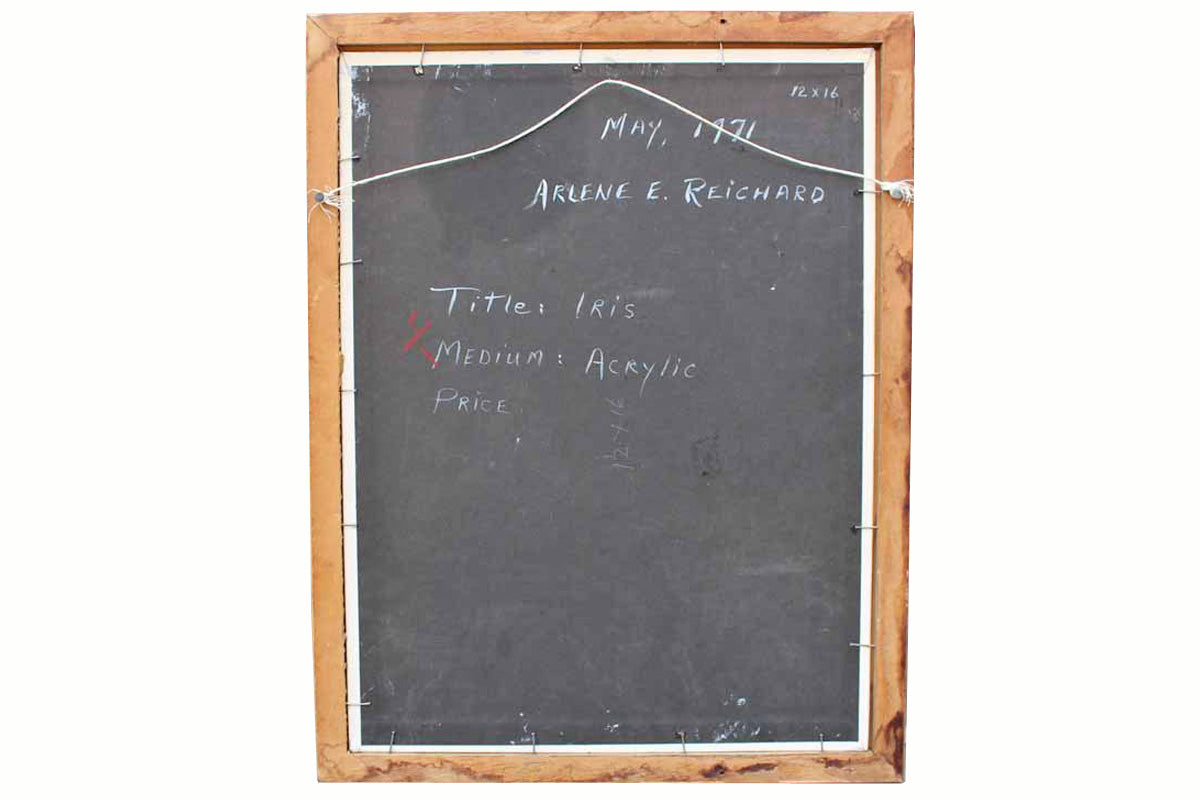 12 x 16
MAY, 1971
ARLENE E. REICHARD
Title: IRIS
MEDIUM: ACRYlic
PRICE
12 X 16